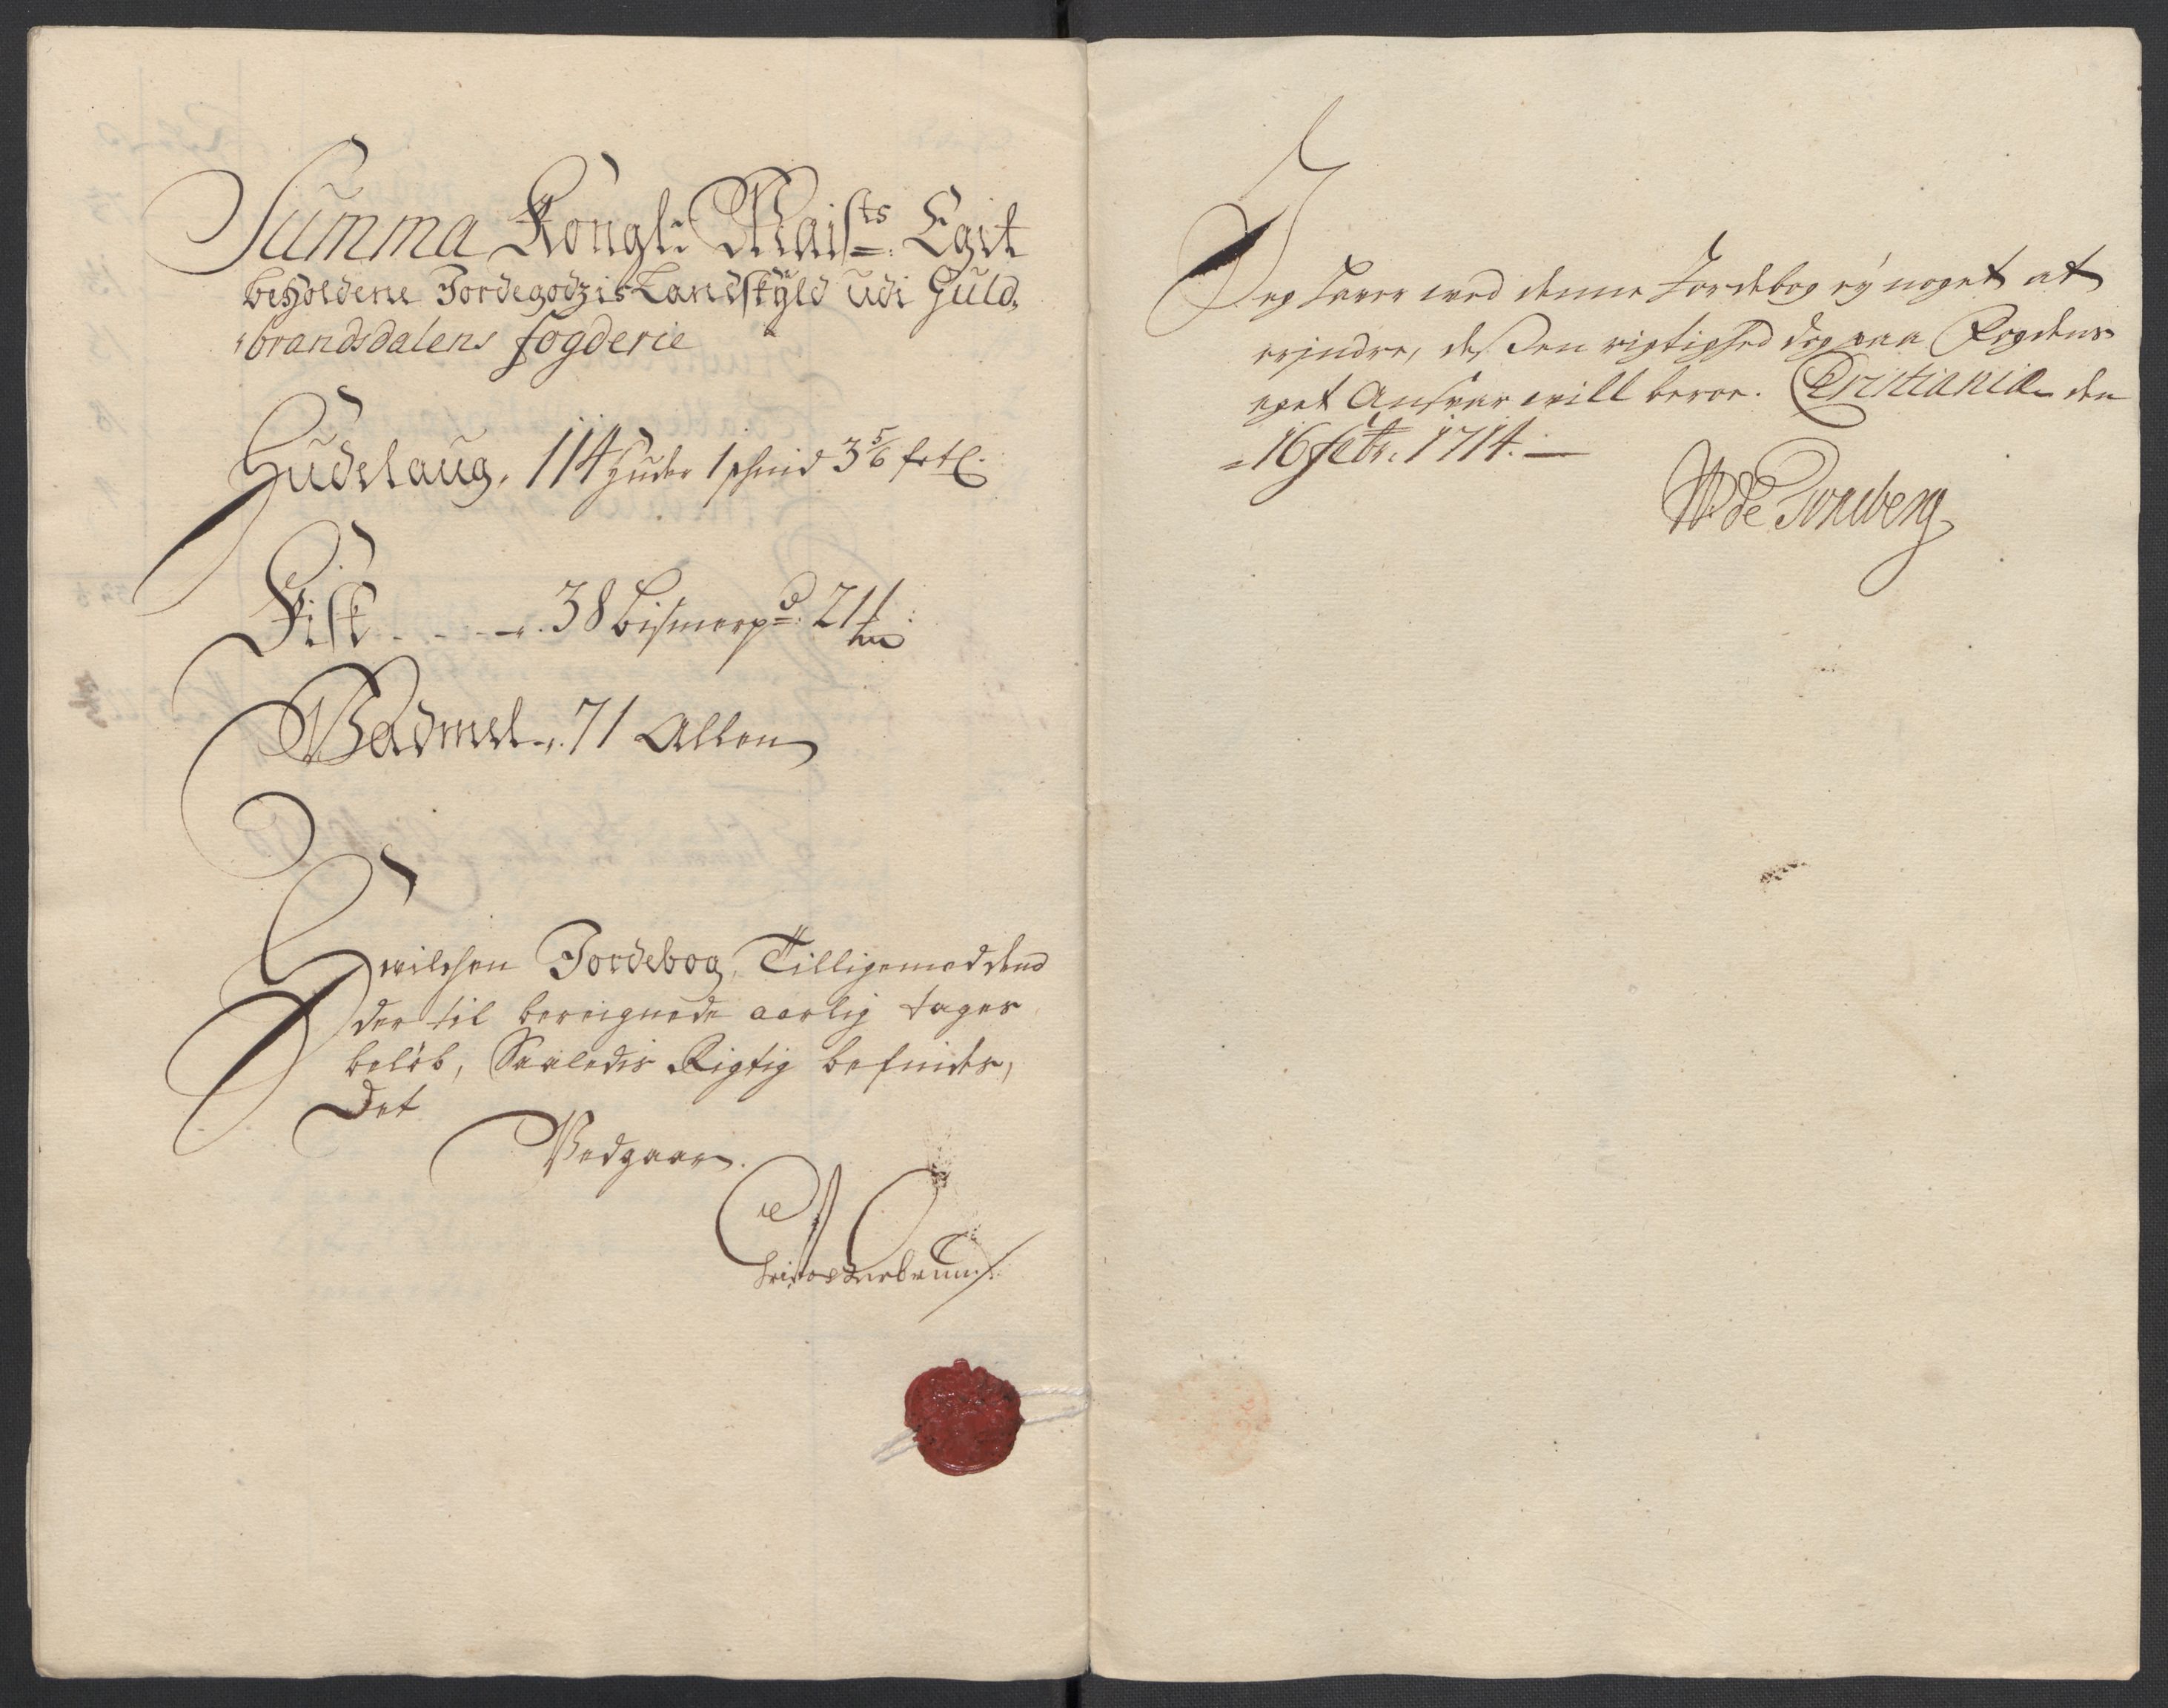 Summa Kongl: Maists: Egit
beholdene Jordegodzis Landskÿld udi Guld,
brandsdalens fogderie
Hudelaug, 114 Huder 1 schind 3 5/6 
Fisk - - - 38 Bismerpd: 21 
Wadmel - 71 Allen
Hvilchen Jordebog, Tilligemed dend
der til bereignede aarlig tages
beløb, Saaledis Rigtig befindes,
Det
Vedgaar.
Jeg haver wed denne Jordebog eÿ noget at
erindre, deßen rigtighed dog paa Fogdens
eget Ansvar will beroe. Christiania den
16 febr: 1714.
W: de Tonsberg